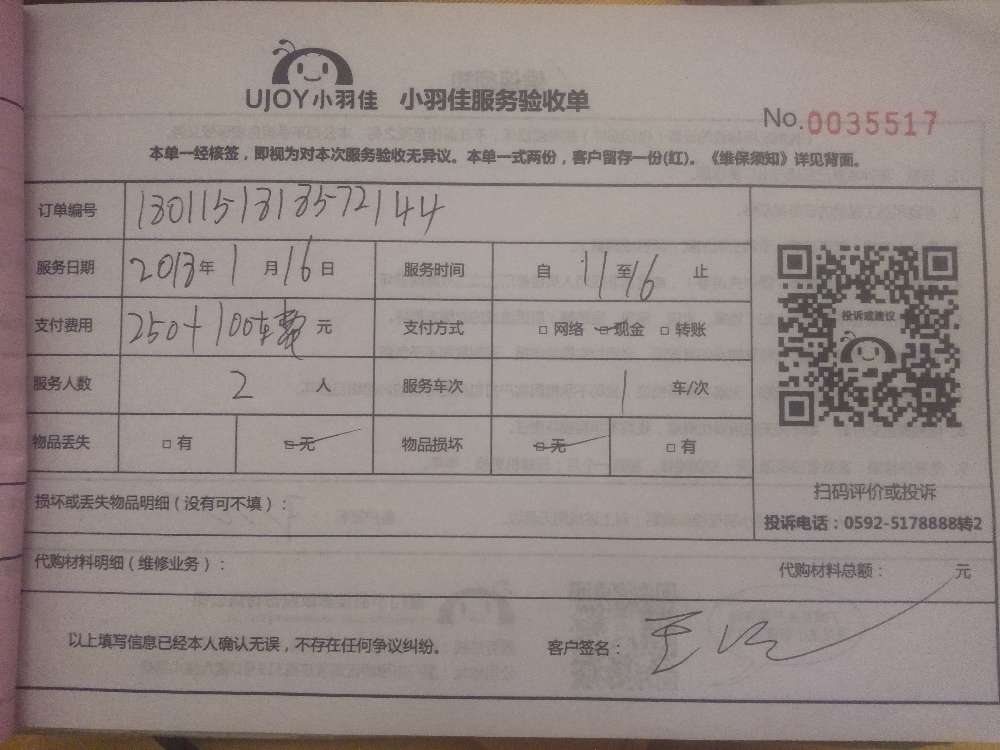 UJOY小羽佳 小羽佳服务验收单
No.0035517
本单一经核签，即视为对本次服务验收无异议。本单一式两份，客户留存一份(红)。《维保须知》详见背面。
订单编号 1301151313572144
服务日期 2013年1月16日 服务时间 自11至16止
支付费用 250+100车费元 支付方式 □网络 □现金 □转账
投诉或建议
服务人数 2人 服务车次 1车/次
物品丢失 □有 □无 物品损坏 □无 □有
扫码评价或投诉
损坏或丢失物品明细（没有可不填）：
投诉电话：0592-5178888转2
代购材料明细（维修业务）： 代购材料总额： 元
以上填写信息已经本人确认无误，不存在任何争议纠纷。 客户签名：